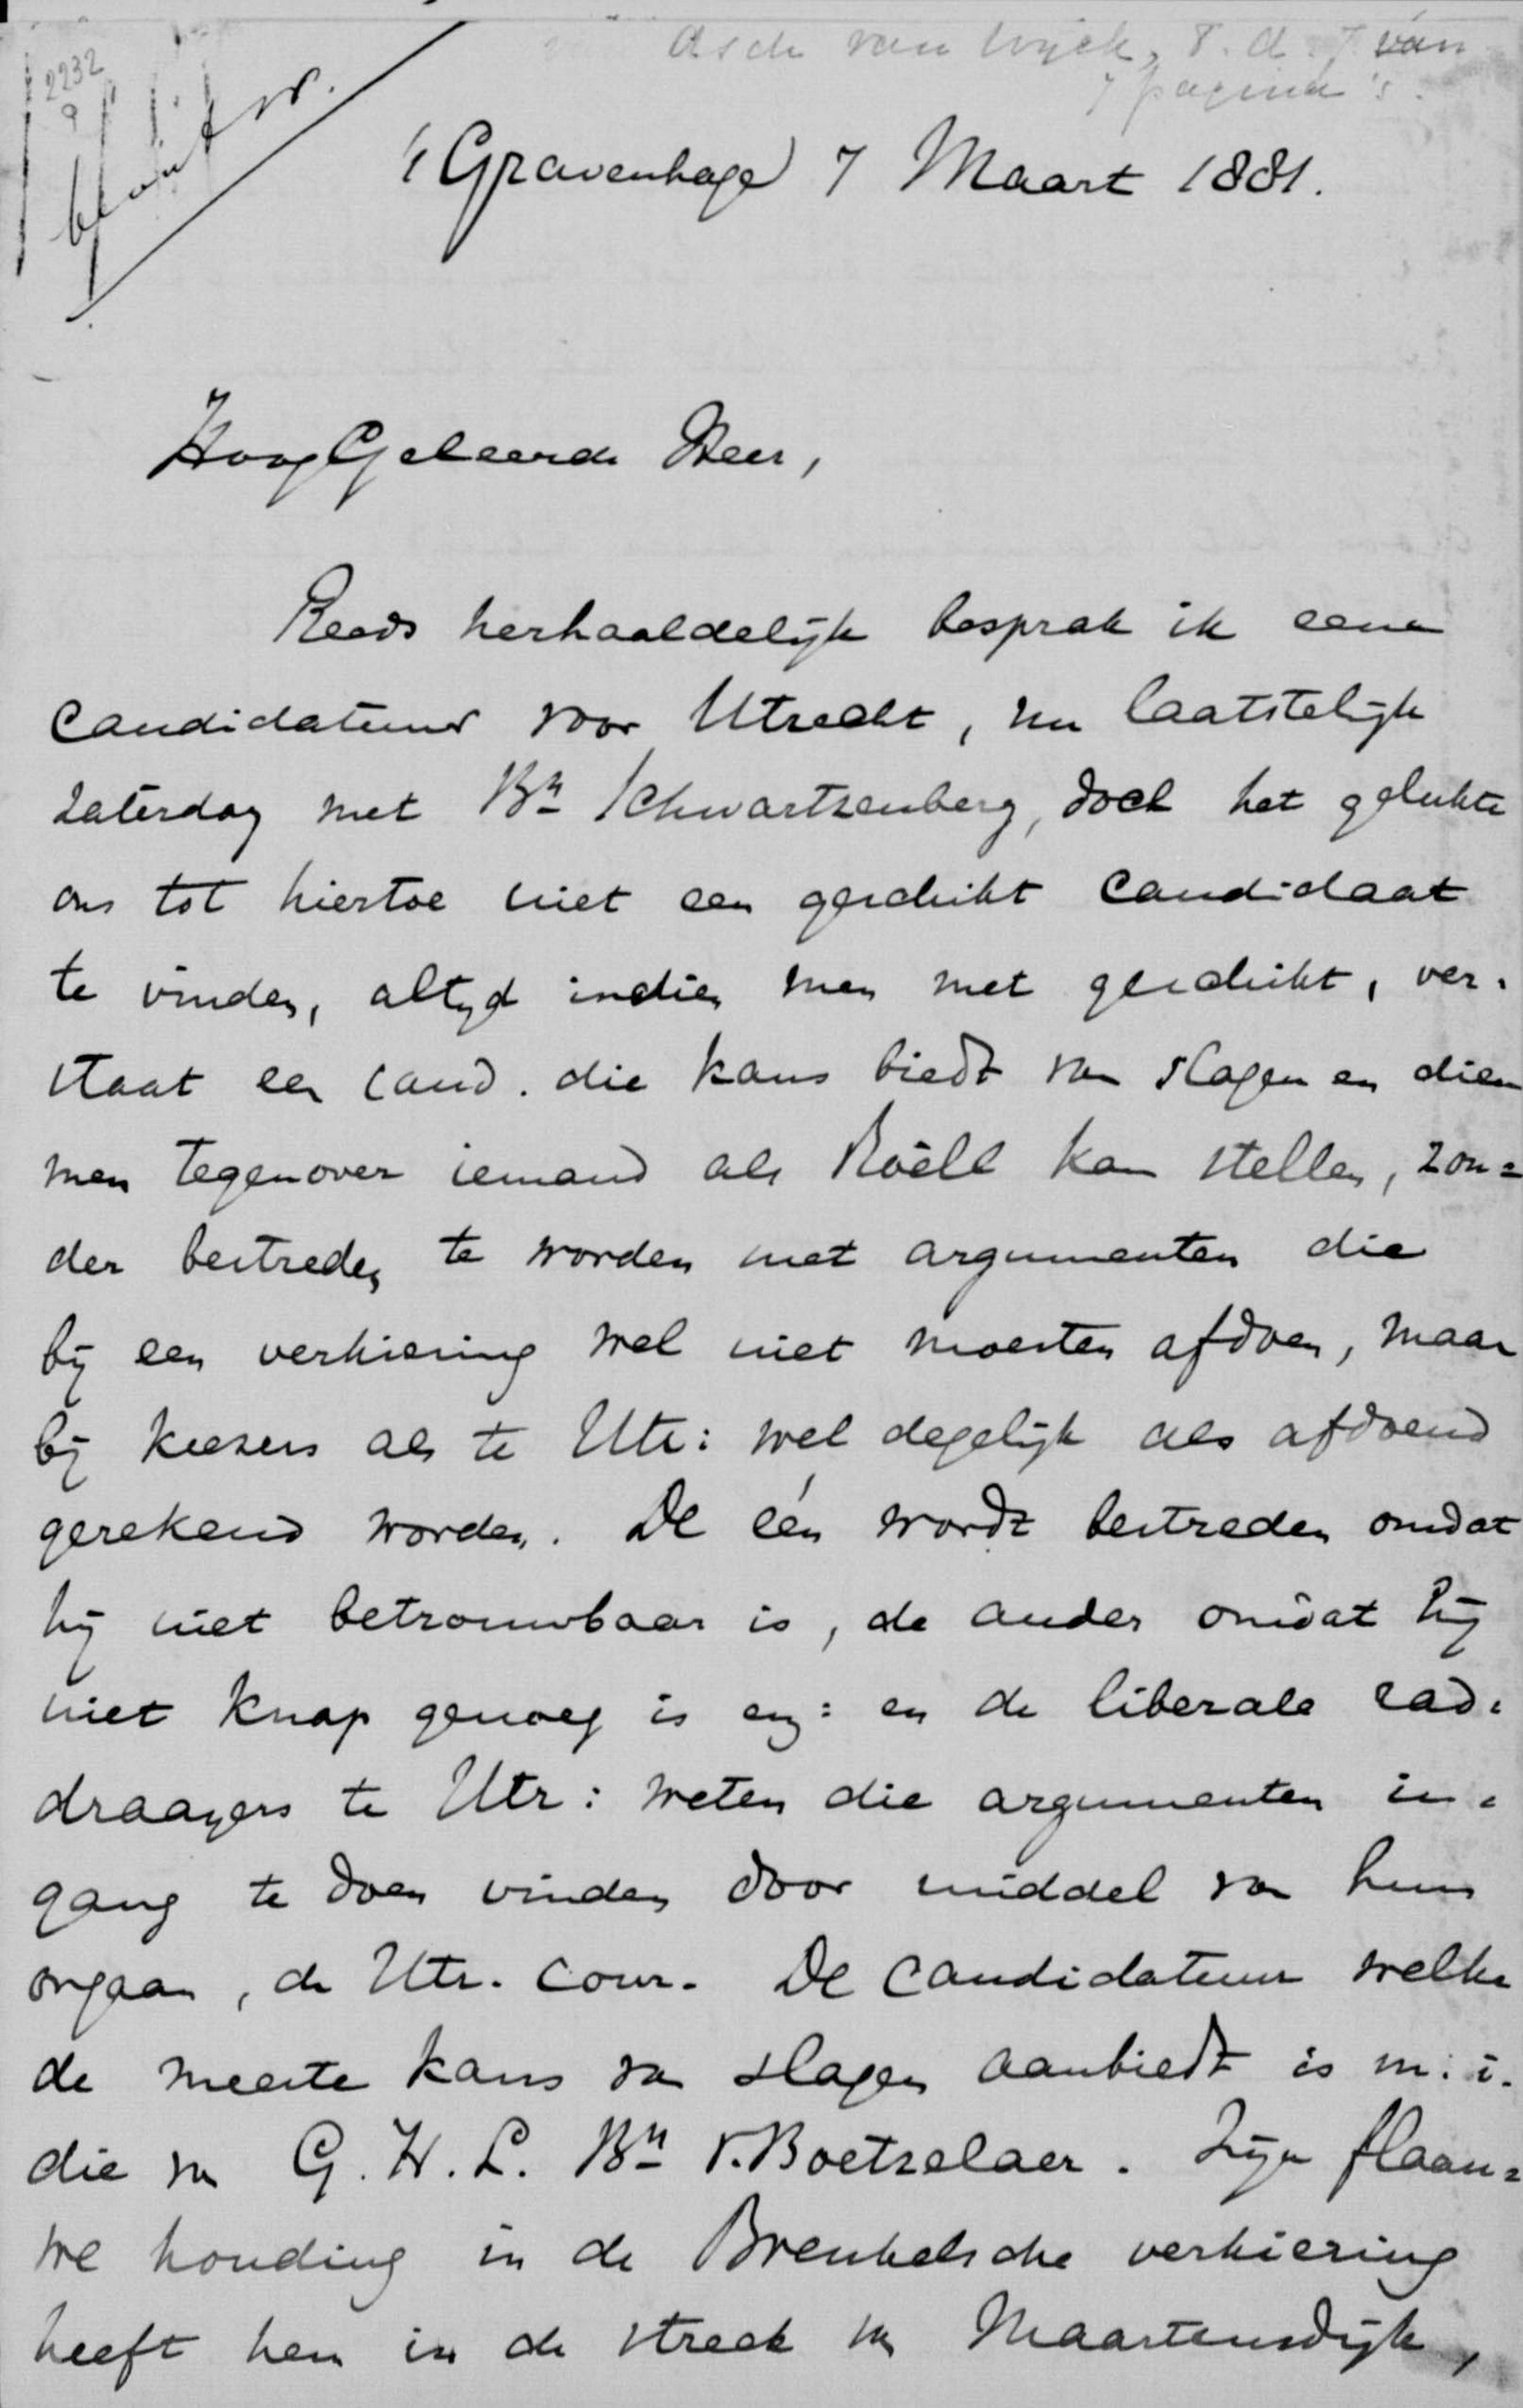 Asch van Wijck, T. d. J van
7 pagina's.
2232
9
's Gravenhage 7 Maart 1881.
HoogGeleerde Heer,
Reeds herhaaldelijk besprak ik eene
candidatuur voor Utrecht, nu laatstelijk
Zaterdag met Bn Schwartzenberg, doch het gelukte
ons tot hiertoe niet een geschikt candidaat
te vinden, altyd indien men met geschikt, ver-
staat een cand. die kans biedt van slagen en dien
men tegenover iemand als Röell kan stellen, zon=
der bestreden te worden met argumenten die
bij een verkiezing wel niet moesten afdoen, maar
bij kiezers als te Utr: wel degelijk als afdoend
gerekend worden. De één wordt bestreden omdat
hij niet betrouwbaar is, de ander omdat hij
niet knap genoeg is enz: en de liberale rad-
draayers te Utr: weten die argumenten in-
gang te doen vinden door middel van hun
orgaan, de Utr. Cour. De candidatuur welke
de meeste kans van slagen aanbiedt is m.i.
die van G. H. L. Bn v. Boetzelaer. Zijn flaau=
we houding in de Breukelsche verkiezing
heeft hem in de streek van Maartensdijk,